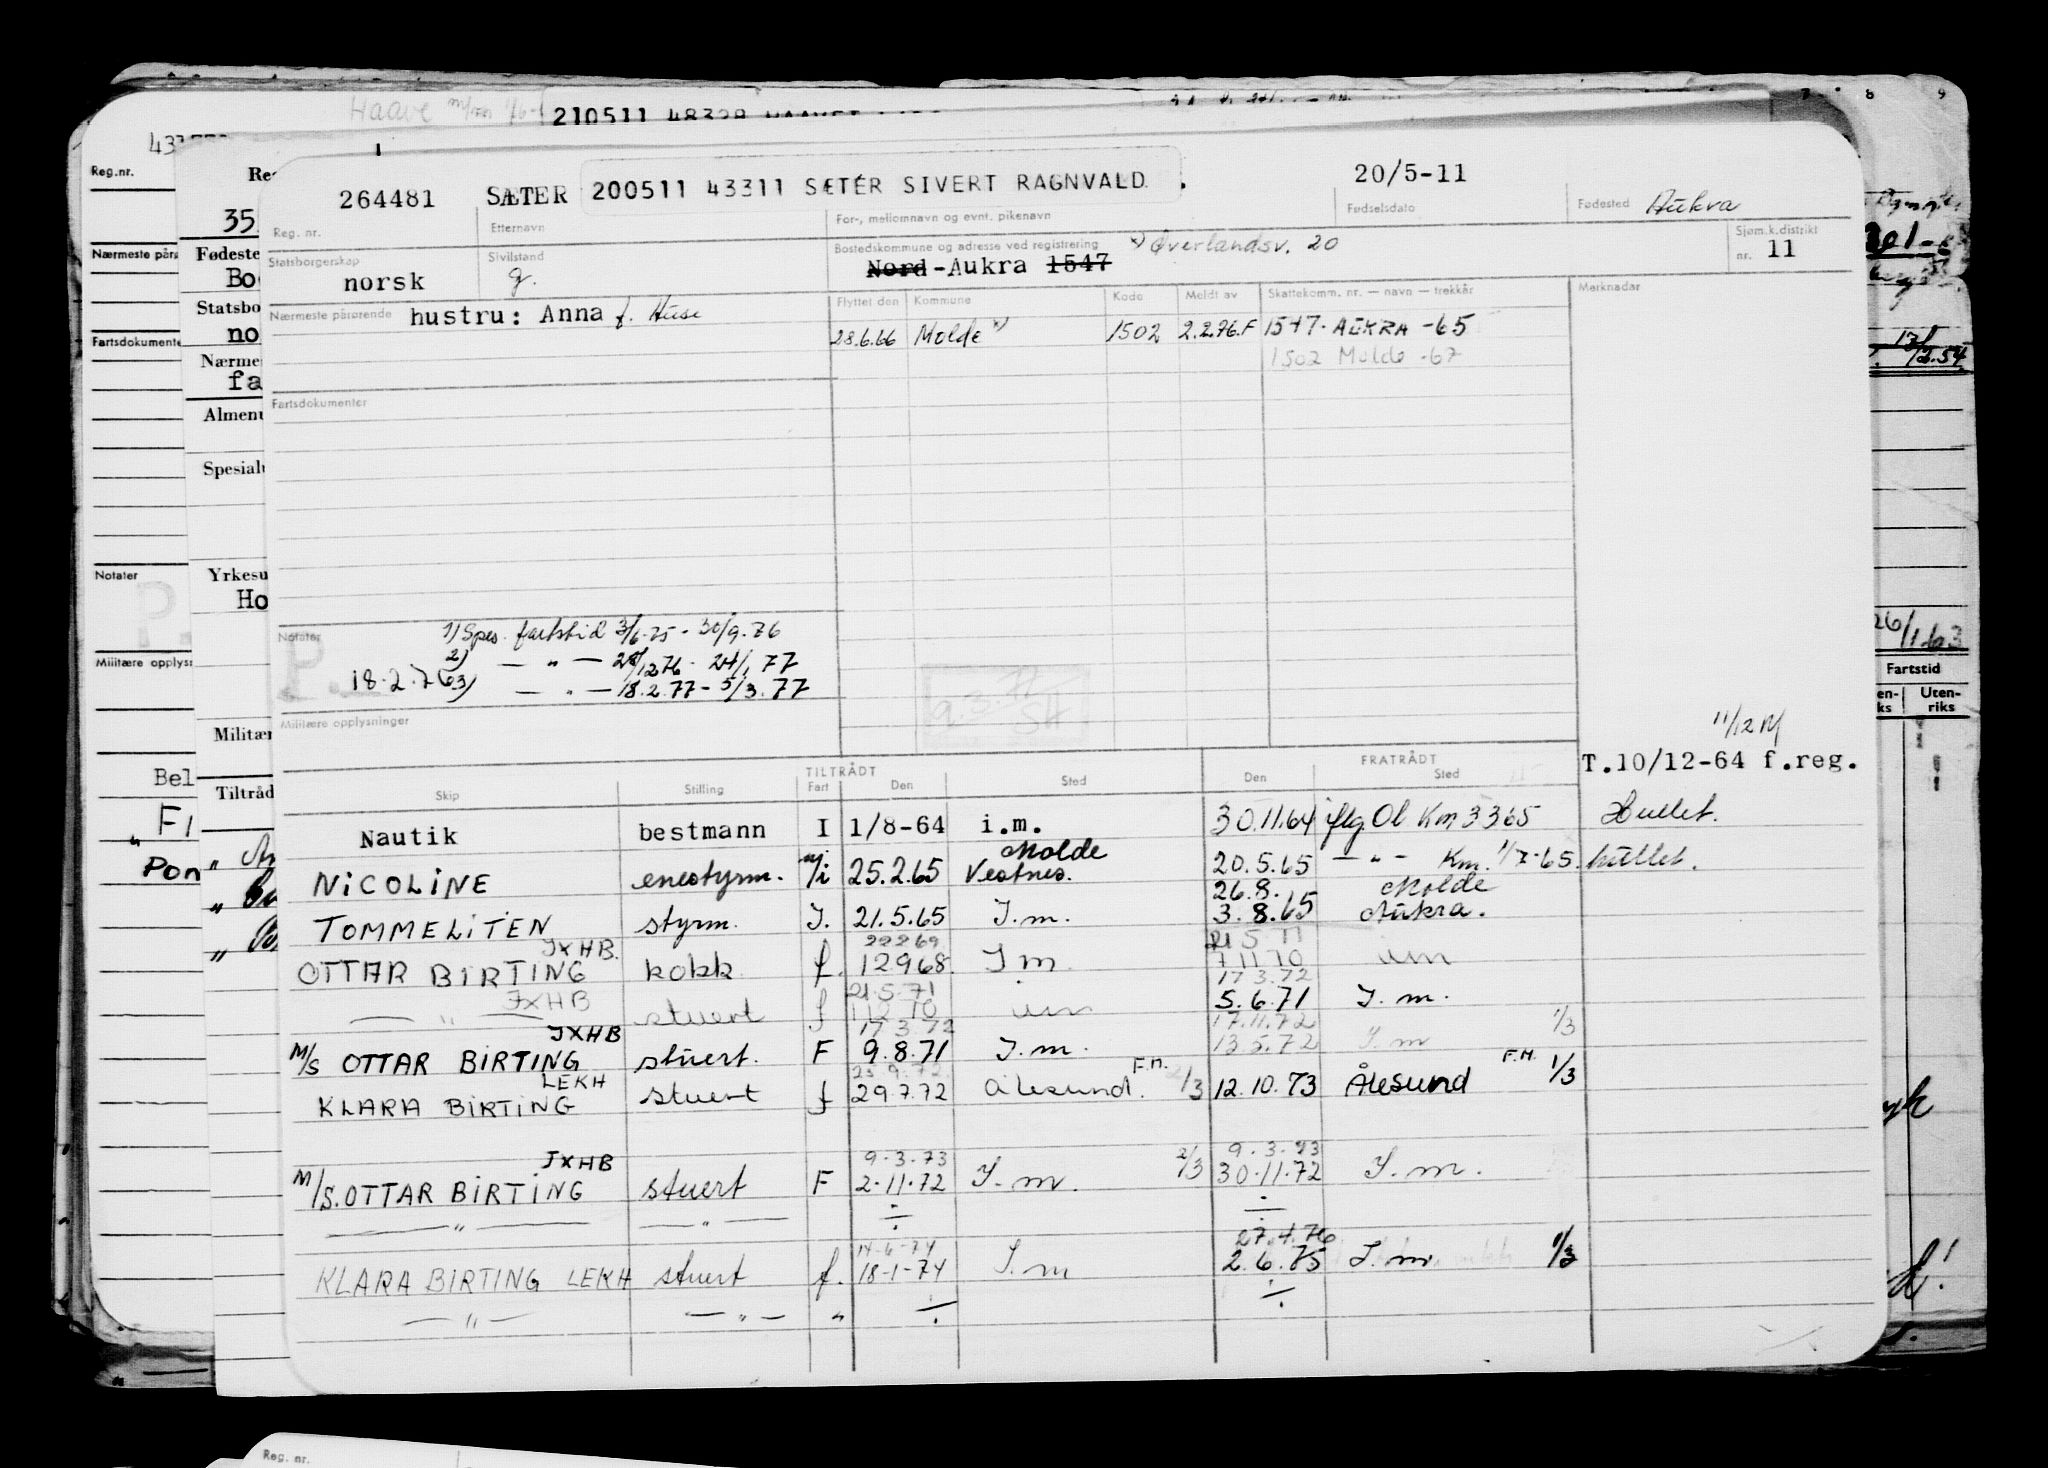 Haave
210511 48329 HAAVET
7 8 9
Reg.nr.
264481 SÆTER 200511 43311 SÆTER SIVERT RAGNVALD. 20/5-11
Reg. nr. Etternavn For-, mellomnavn og evnt. pikenavn Fødselsdato Fødested Aukra
Statsborgerskap norsk Sivilstand g. Bostedskommune og adresse ved registrering x) Øverlandsv. 20 Sjøm.k.distrikt
Nord-Aukra 1547 nr. 11
Nærmeste pårørende hustru: Anna f. Huse Flyttet den Kommune Kode Meldt av Skattekomm. nr. — navn — trekkår Merknader
28.6.66 Molde x) 1502 2.2.76.F 1547. AUKRA -65
1502 Molde -67
Fartsdokumenter
Notater
P.
1) Spes. fartstid 3/6.75 - 30/9.76
2) — " — 28/12 76 - 24/1 77
18.2.76 3) — " — 18.2.77 - 5/3.77
9.3.77
SH
Militære opplysninger
11/12 M
T.10/12-64 f.reg.
TILTRÅDT FRATRÅDT
Skip Stilling Fart Den Sted Den Sted
Nautik bestmann I 1/8-64 i.m. 30.11.64 iflg Ol Km 3365 Hullet.
NICOLINE enestyrm. n/i 25.2.65 Molde Vestnes. 20.5.65 — " — Km. 1/7-65. hullet.
TOMMELITEN styrm. I. 21.5.65 I.m. 26.8. 3.8.65 Molde Aukra.
OTTAR BIRTING JXHB. kokk f. 22269 12968 I m. 21 5 71 7 11 70 um
— " — JXHB stuert f 21.5.71 112 70 um 17 3.72 5.6.71 I.m.
M/S OTTAR BIRTING JXHB stuert. F 17 3 72 9.8.71 I.m. 17.11.72 13 5.72 I.m 1/3
KLARA BIRTING LEKH stuert f 23.9.72 29.7.72 Ålesund. F.M. 2/3 12.10.73 Ålesund F.M. 1/3
M/S. OTTAR BIRTING JXHB stuert F 9.3.73 2.11.72 I.m. 2/3 9.3.73 30.11.72 I.m.
— " — — " — ÷ ÷
KLARA BIRTING LEKH stuert f. 14-6-74 18-1-74 I.m 27.4.76 2.6.75 I.m. 1/3
— " — — " — " ÷ ÷
Reg.nr.
Nærmeste pårø
Fartsdokumente
Notater
Militære opplysn
Bel
F
Pon
35
Fødeste
Bo
Statsbo
no
Nærme
fa
Almenu
Spesialu
Yrkesu
Ho
Militæ
Tiltråd
12.54
26/1.63
Fartstid
en-
ks
Uten-
riks
Reg. nr.